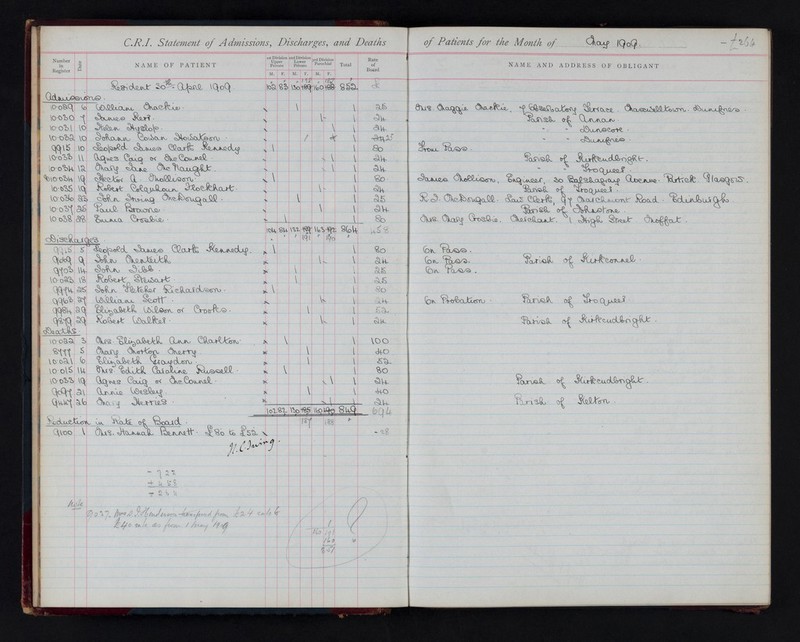 C.R.I. Statement of Admissions, Discharges, and Deaths of Patients for the Month of May 1909.
Number in Register Date NAME OF PATIENT 1st Division Upper Private 2nd Division Lower Private 3rd Division Parochial Total Rate of Board NAME AND ADDRESS OF OBLIGANT
M. F. M. F. M. F.
Resident 30th April 1909 852 £
Admissions.
10029 6 William Mackie 1 25 Mrs. Maggie Mackie, 7 Observatory Terrace. Maxwelltown. Dumfries
10030 7 James Kerr 1 24 Parish of Annan
10031 10 Helen Hyslop 1 24 " " Dunscore
10032 10 Johann 1 " " Dumfries
9915 10 Leopold James Clark Kennedy 1 80 From Pass.
10033 11 Agnes Caig or McConnel 1 24 Parish of Kirkcudbright.
10034 12 Mary Jane McNaught 1 24 " Troqueer
Hector A Mollison 1 80 James Mollison, Engineer, 30 Balshagray Avenue. Partick Glasgow.
10035 19 Robert Colquhoun Stockhart 1 24 Parish of Troqueer
10036 23 John Irving McDougall 1 25 McDougall. Law Clerk, 97 Marchmont Road. Edinburgh
10037 26 Paul Browne 1 24 Parish of Johnstone
10038 28 Euma Crosbie 1 80 Mrs. Mary Crosbie. Merchant. High Street Moffat.
864 458
Discharges
9915 5 Leopold James Clark Kennedy 1 80 On Pass.
9069 9 John Menteith 1 24 On Pass. Parish of Kirkconnel
9703 14 John Gibb 1 25 On Pass.
10023 18 Robert Stewart 1 25
9974 25 John Fletcher Richardson 1 80
9963 27 William Scott 1 24 On Probation Parish of Troqueer
9984 29 Elizabeth Wilson or Crooks 1 52
29 Robert Walker 1 24 Parish of Kirkcudbright
Deaths
10022 3 Mrs. Elizabeth Ann Charlton 1 100
8777 5 Mary Morton Cherry 1 40
10021 6 Elizabeth Graydon 1 52
10015 14 Mrs. Edith Caroline Russell 1 80
10033 19 Agnes Caig or McConnel 1 24 Parish of Kirkcudbright.
9097 21 Annie Wesley 1 40
9447 26 Mary Herries 1 24 Parish of Kelton.
849 694
Reduction in Rate of Board
9100 1 Mrs. Hannah Bennett £80 to £52 - 28
- 722
Note
9037. transferred from £24 rate to
£40 rate as from 1 May 1909